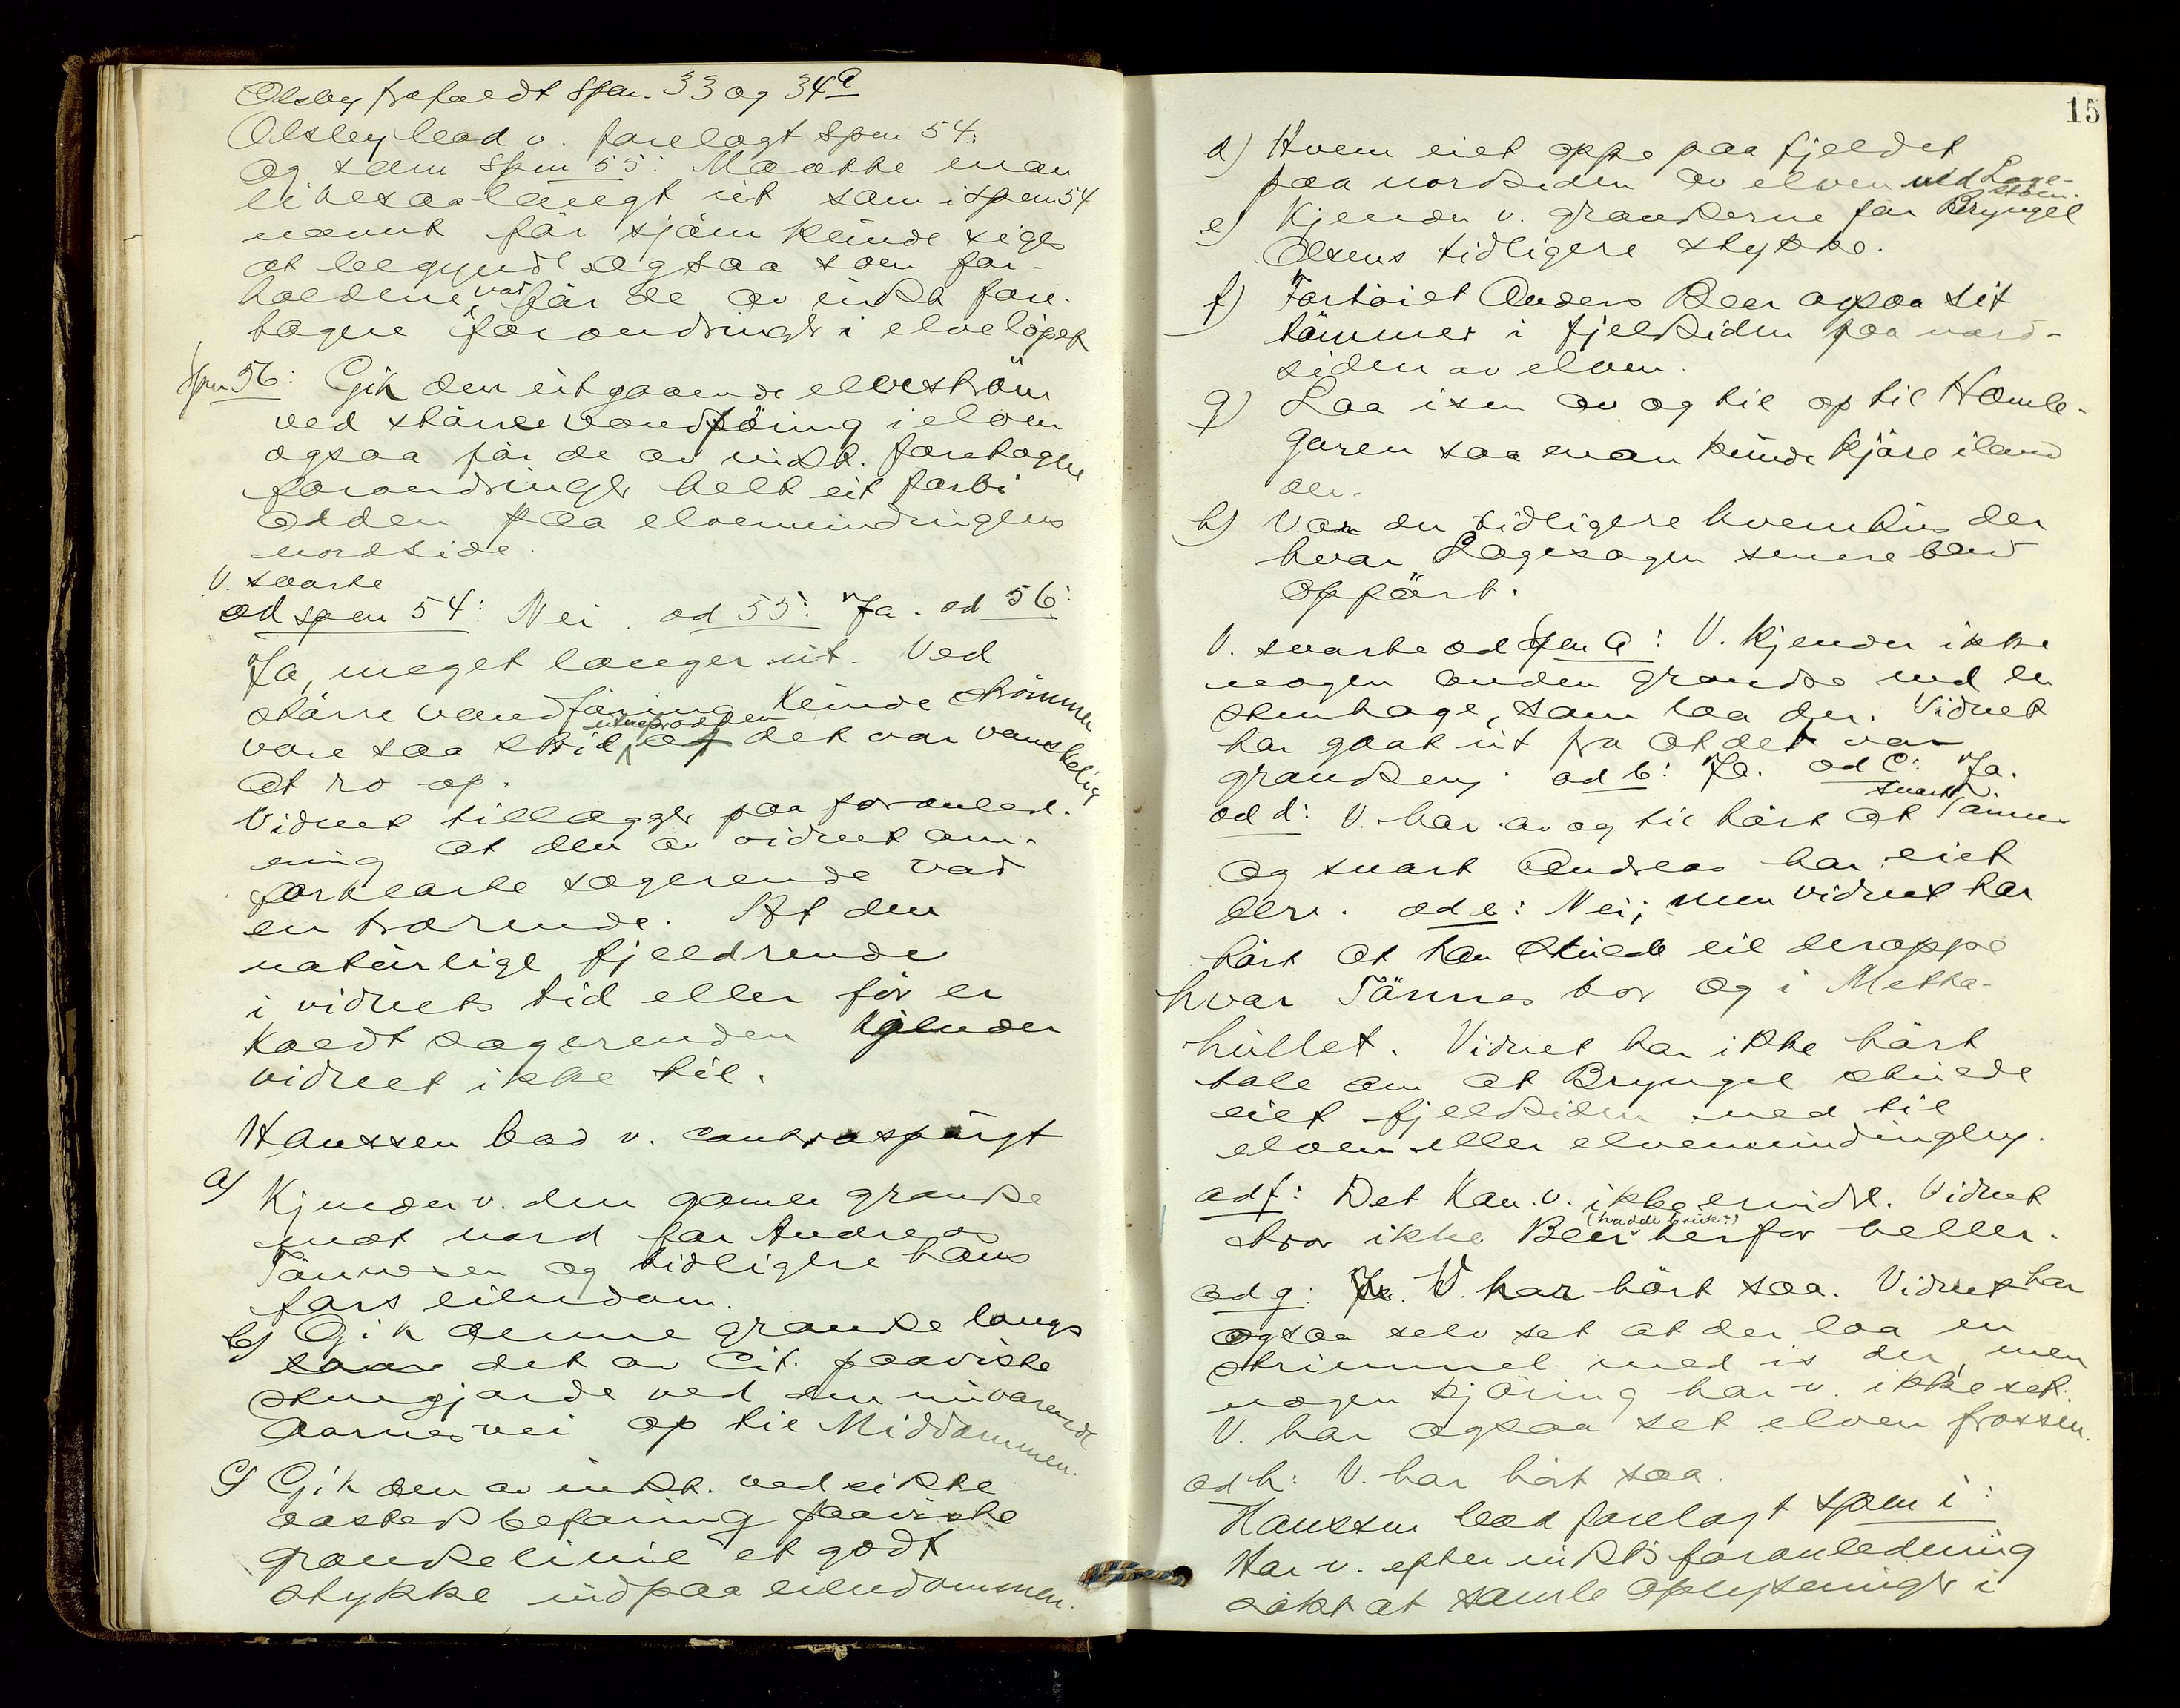 Olsby frafaldt Spm. 33 og 34a
Olsby bad v. forelagt Spm 54:
og som Spm 55: Maatte man
likesaalangt ut som i spm 54
nævnt før sjøen kunde siges
at begynde ogsaa som for-
holdene var før de av indst. fore-
tagne forandringer i elveløpet
Spm 56: Gik den utgaaende elvestrøm
ved større vandføring i elven
ogsaa før de av indst. foretagne
forandringer helt ut forbi
odden paa elvemundingens
nordside.
V. svarte
ad spm 54: Nei. ad 55: Ja. ad 56:
Ja, meget længer ut. Ved
større vandføring kunde strømmen
være saa strid utenfor odden at det var vanskelig
at ro op.
Vidnet tillægger paa foranled-
ning at den av vidnet om-
forklarte sagerende var
en trærende. At den
naturlige fjeldrende
i vidnets tid eller før er
kaldt sagerenden kjender
vidnet ikke til.
Hanssen bad v. contraspurgt
a) Kjender v. den gamle grændse
mot nord for Andreas
Tønnesen og tidligere hans
fars eiendom.
b) Gik denne grændse langs
det av Cit. paaviste
stengjærde ved den nuværende
Aarnesvei op til Middammen.
c) Gik den av indst. ved sidste
aastedsbefaring paaviste
grændselinie et godt
stykke ind paa eiendommen.
15
d) Hvem eiet oppe paa fjeldet
paa nordsiden av elven ved Lage-
støen.
e) Kjender v. grændserne for Bryngel
Olsens tidligere stykke.
f) Fortøiet Anders Beer ogsaa sit
tømmer i fjeldsiden paa nord-
siden av elven.
g) Laa isen av og til op til Hamle-
garen saa man kunde kjøre iland
der.
h) Var der tidligere kvernhus der
hvor Lagesagen senere blev
opført.
V. svarte ad spm a: V. kjender ikke
nogen anden grændse end en
stenhage, som laa der. Vidnet
har gaat ut fra at det var
grændsen. ad b: Ja. ad c: Ja.
ad d: V. har av og til hørt at snart Tønnes
og snart Andreas har eiet
der. ad e: Nei; men vidnet har
hørt at han skulde eie deroppe
hvor Tønnes bor og i Metta-
hullet. Vidnet har ikke hørt
tale om at Bryngel skulde
eiet fjeldsiden ned til
elven eller elvemundingen.
ad f: Det kan v. ikke erindre. Vidnet
tror ikke Beer (hadde bruk?) herfor heller.
ad g: V. har hørt saa. Vidnet har
ogsaa selv set at der laa en
strimmel med is der, men
nogen kjøring har v. ikke set.
V. har ogsaa set elven frossen.
ad h: V. har hørt saa.
Hanssen bad forelagt spm i:
Har v. efter indst's foranledning
søkt at samle oplysninger i